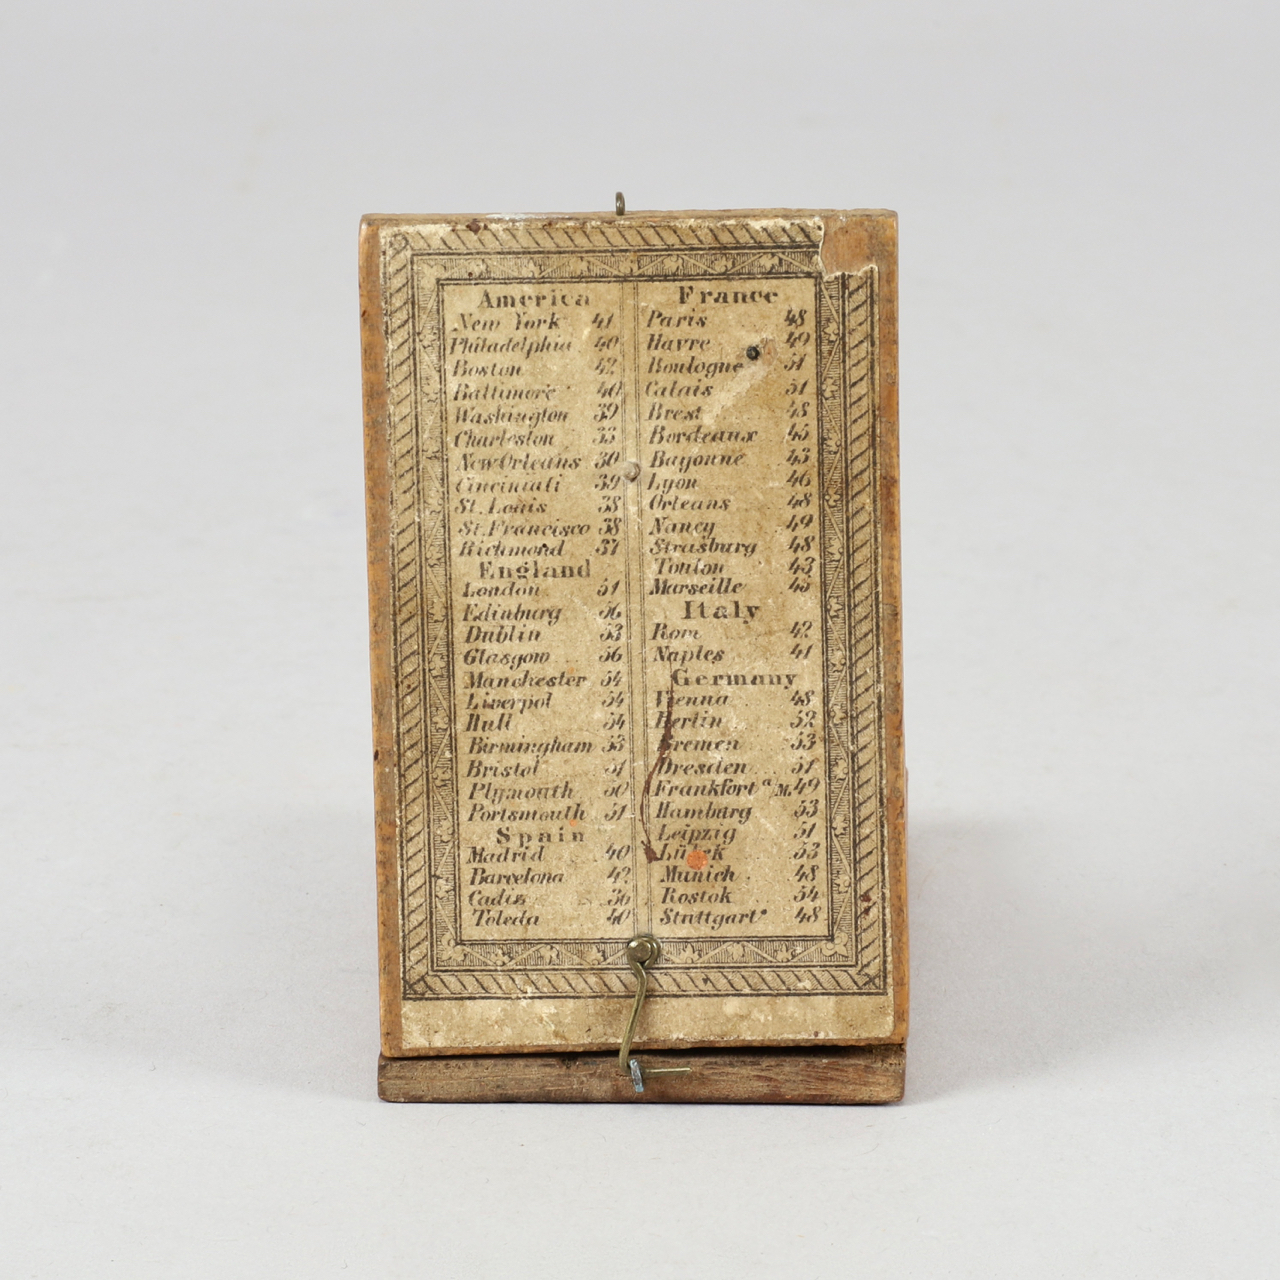 America
New York 41
Philadelphia 40
Boston 42
Baltimore 40
Washington 39
Charleston 33
New Orleans 30
Cincinnati 39
St. Louis 38
St. Francisco 38
Richmond 37
England
London 51
Edinburg 56
Dublin 53
Glasgow 56
Manchester 54
Liverpol 54
Hull 54
Birmingham 53
Bristol 51
Plymouth 50
Portsmouth 51
Spain
Madrid 40
Barcelona 42
Cadiz 36
Toleda 40
France
Paris 48
Havre 49
Boulogne 51
Calais 51
Brest 48
Bordeaux 45
Bayonne 43
Lyon 46
Orleans 48
Nancy 49
Strasburg 48
Toulon 43
Marseille 45
Italy
Rom 42
Naples 41
Germany
Vienna 48
Berlin 52
Bremen 53
Dresden 51
Frankfort a/M. 49
Hamburg 53
Leipzig 51
Lübek 53
Munich 48
Rostok 54
Stuttgart 48